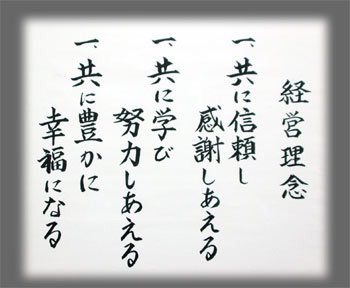 経営理念
一、共に信頼し
感謝しあえる
一、共に学び
努力しあえる
一、共に豊かに
幸福になる